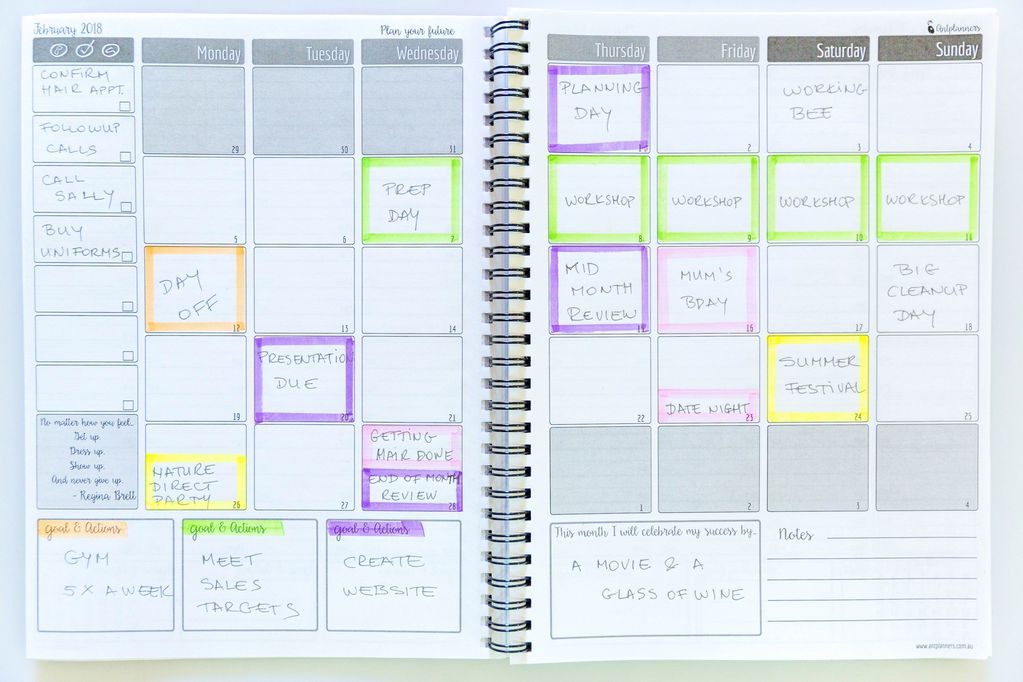 February 2018
Plan your future
Artplanners
Monday
Tuesday
Wednesday
Thursday
Friday
Saturday
Sunday
CONFIRM
HAIR APPT.
FOLLOWUP
CALLS
CALL
SALLY
BUY
UNIFORMS
29
30
31
PLANNING
DAY
1
2
WORKING
BEE
3
4
5
6
PREP
DAY
7
WORKSHOP
8
WORKSHOP
9
WORKSHOP
10
WORKSHOP
11
DAY
OFF
12
13
14
MID
MONTH
REVIEW
15
MUM'S
BDAY
16
17
BIG
CLEANUP
DAY
18
19
PRESENTATION
DUE
20
21
22
DATE NIGHT
23
SUMMER
FESTIVAL
24
25
NATURE
DIRECT
PARTY
26
27
GETTING
HAIR DONE
END OF MONTH
REVIEW
28
1
2
3
4
No matter how you feel...
Get up.
Dress up.
Show up.
And never give up.
- Regina Brett
goal & Actions
GYM
5 X A WEEK
goal & Actions
MEET
SALES
TARGETS
goal & Actions
CREATE
WEBSITE
This month I will celebrate my success by...
A MOVIE & A
GLASS OF WINE
Notes
www.artplanners.com.au